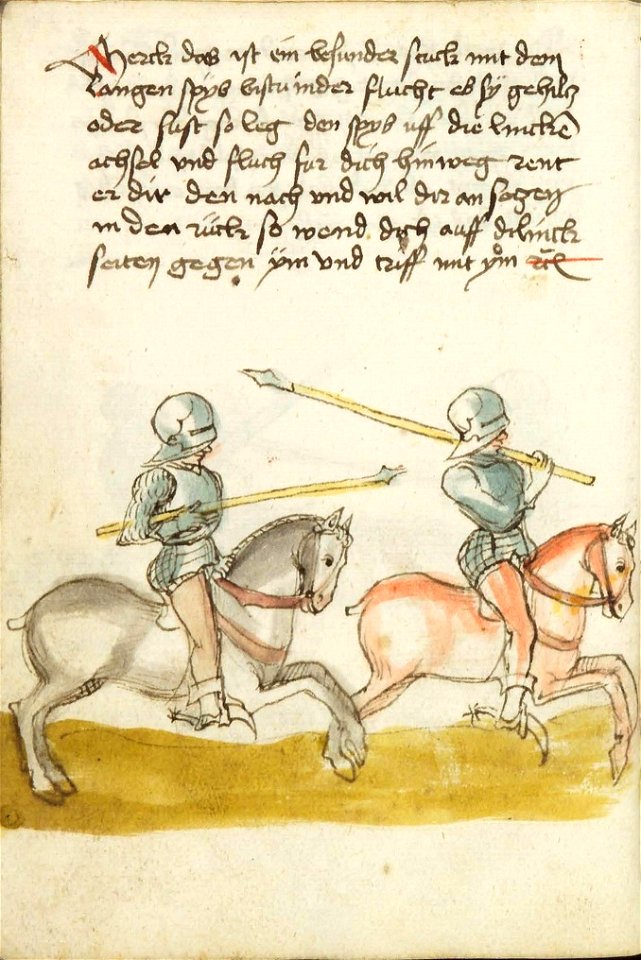 Merck das ist ein besunder stuck mit dem
langen spÿs bistu in der flucht es sÿ gehilz
oder sust so leg den spÿs uff die linckē
achsel vnd fluch fur dich hinweg rent
er dir den nach vnd wil dir an setzen
in den rück so wend dich auff di linck
seiten gegen ÿm vnd triff mit ÿm